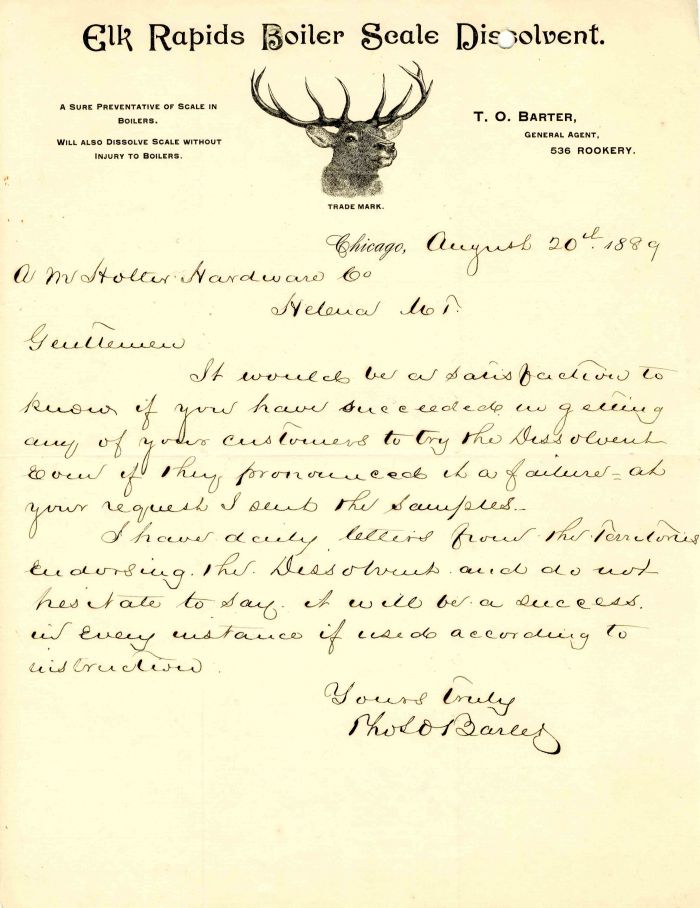 Elk Rapids Boiler Scale Dissolvent.
A Sure Preventative of Scale in
Boilers.
Will also Dissolve Scale without
Injury to Boilers.
T. O. Barter,
General Agent,
536 Rookery.
TRADE MARK.
Chicago, August 20th. 1889
A M Holter Hardware Co
Helena M T.
Gentlemen
It would be a satisfaction to
know if you have succeeded in getting
any of your customers to try the Dissolvent
Even if they pronounced it a failure - at
your request I sent the samples.
I have daily letters from the Territories
endorsing the Dissolvent and do not
hesitate to say it will be a success.
in Every instance if used according to
instruction.
Yours Truly
Thos O Barter